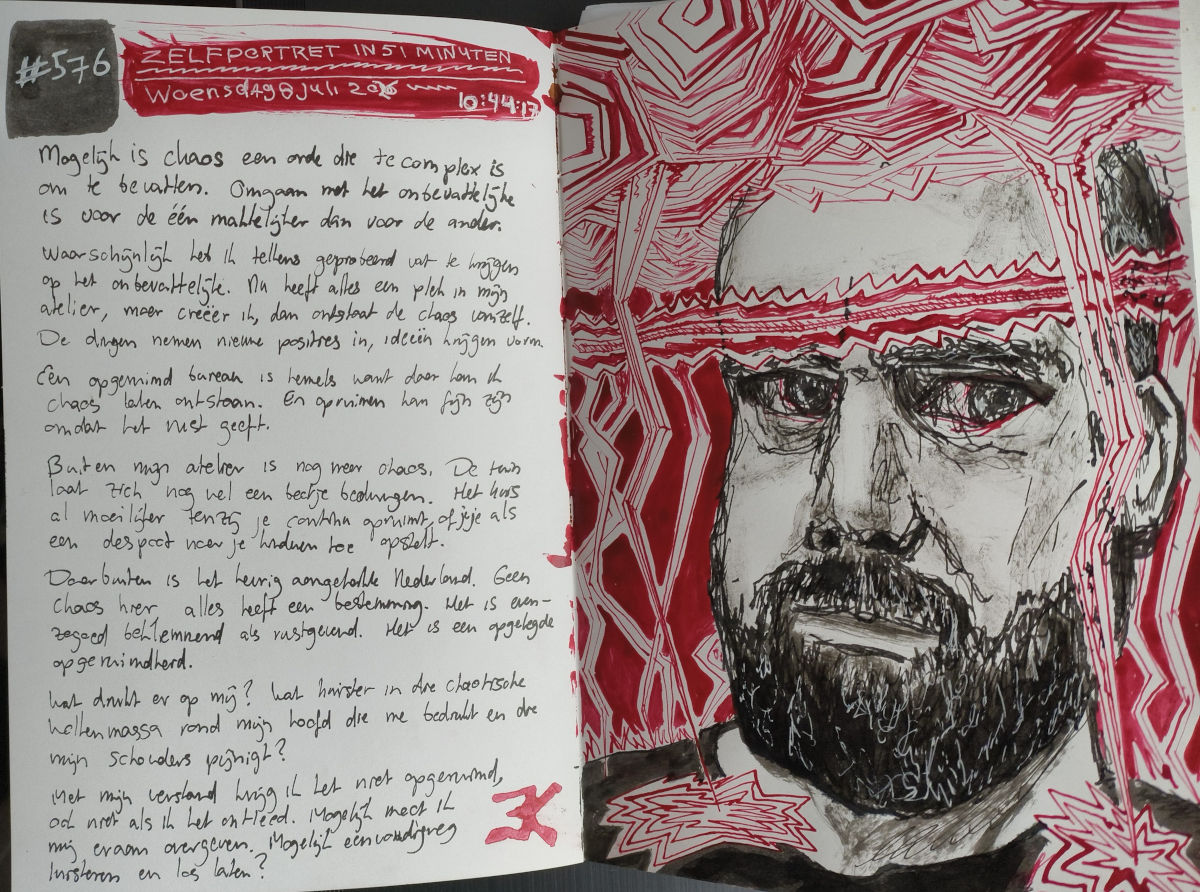 #576
ZELFPORTRET IN 51 MINUTEN
Woensdag 8 juli 2026
10:44:17
Mogelijk is chaos een orde die te complex is
om te bevatten. Omgaan met het onbevattelijke
is voor de één makkelijker dan voor de ander.
Waarschijnlijk heb ik telkens geprobeerd vat te krijgen
op het onbevattelijke. Nu heeft alles een plek in mijn
atelier, maar creëer ik, dan ontstaat de chaos vanzelf.
De dingen nemen nieuwe posities in, ideeën krijgen vorm.
Een opgeruimd bureau is hemels want daar kan ik
chaos laten ontstaan. En opruimen kan fijn zijn
omdat het rust geeft.
Buiten mijn atelier is nog meer chaos. De tuin
laat zich nog wel een beetje bedwingen. Het huis
al moeilijker tenzij je continu opruimt, of je je als
een despoot naar je kinderen toe opstelt.
Daarbuiten is het keurig aangeharkte Nederland. Geen
chaos hier, alles heeft een bestemming. Het is even-
zogoed beklemmend als rustgevend. Het is een opgelegde
opgeruimdheid.
Wat drukt er op mij? Wat huist er in die chaotische
wolkenmassa rond mijn hoofd die me bedrukt en die
mijn schouders pijnigt?
Met mijn verstand krijg ik het niet opgeruimd,
ook niet als ik het ontleed. Mogelijk moet ik
mij eraan overgeven. Mogelijk eenvoudigweg
luisteren en los laten?